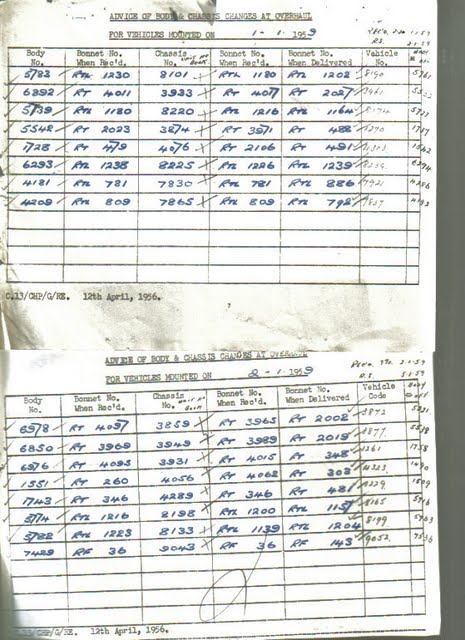 ADVICE OF BODY & CHASSIS CHANGES AT OVERHAUL
FOR VEHICLES MOUNTED ON 1 - 1 - 1959
Body No. Bonnet No. When Rec'd. Chassis No. Bonnet No. When Rec'd. Bonnet No. When Delivered Vehicle No.
5783 RTL 1230 8101 RTL 1180 RTL 1202 8190 5761
6892 RT 4011 3933 RT 4077 RT 2027 3961
5739 RTL 1180 8220 RTL 1216 RTL 1164
5542 RT 2023 3874 RT 3971 RT 488
1728 RT 479 4076 RT 2106 RT 491
6293 RTL 1238 8225 RTL 1226 RTL 1239
4181 RTL 781 7830 RTL 781 RTL 886 7921 4286
4209 RTL 809 7865 RTL 809 RTL 792 7837 4193
C.13/CHP/G/RE. 12th April, 1956.
ADVICE OF BODY & CHASSIS CHANGES AT
FOR VEHICLES MOUNTED ON 2 - 1 - 1959
Body No. Bonnet No. When Rec'd. Chassis No. Bonnet No. When Rec'd. Bonnet No. When Delivered Vehicle Code
6978 RT 4097 3859 RT 3965 RT 2002 3872
6850 RT 3969 3949 RT 3989 RT 2019 3877 5538
6976 RT 4095 3931 RT 4015 RT 348 4261 1758
1551 RT 260 4056 RT 4062 RT 303 4323 1490
1743 RT 346 4289 RT 346 RT 481 4229 1809
5774 RTL 1216 8198 RTL 1200 RTL 1157 8165 5716
5782 RTL 1223 8133 RTL 1139 RTL 1204 8199 5763
7429 RF 36 9043 RF 36 RF 143 9052 7536
C.13/CHP/G/RE. 12th April, 1956.